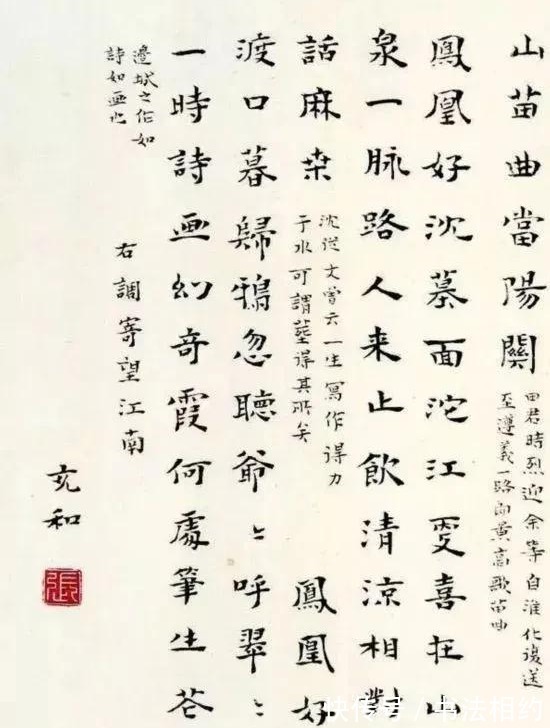 山苗曲當陽關
田君時烈迎余等自淮化復送
至遵義一路高歌苗曲
鳳凰好沈墓面沱江更喜在山
泉一脉路人来止飲清涼相對
話麻桒
沈從文曾云一生寫作得力
于水可謂葬得其所矣
鳳凰好
渡口暮歸鴉忽聽爺〻呼翠〻
一時詩画幻奇霞何處筆生花
邊城之作如
詩如画也
右調寄望江南
充和
張
快传号 / 书法相约